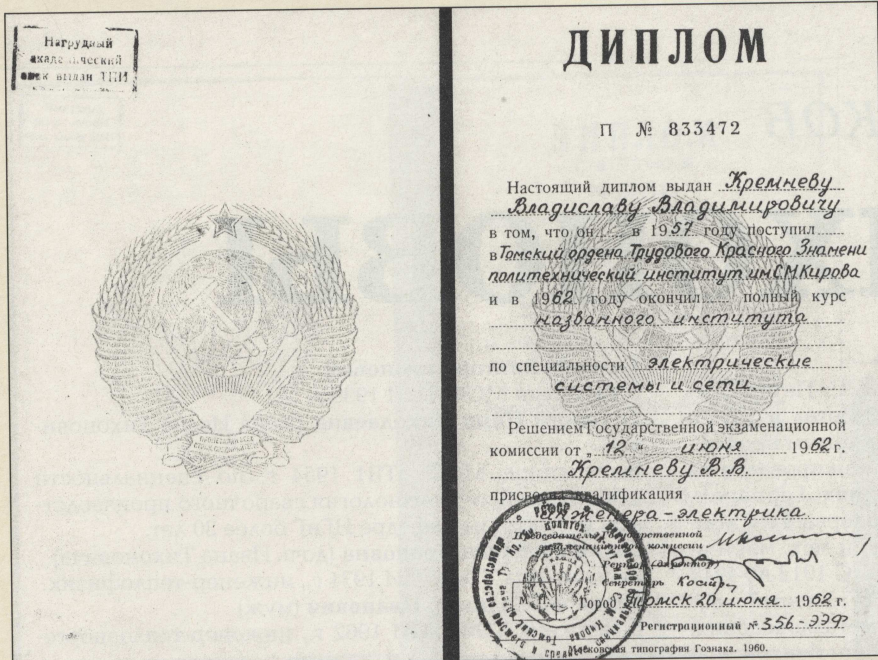 Нагрудный
академический
знак выдан ТПИ
ДИПЛОМ
П № 833472
Настоящий диплом выдан Кремневу
Владиславу Владимировичу
в том, что он в 1957 году поступил
в Томский ордена Трудового Красного Знамени
политехнический институт им С.М Кирова
и в 1962 году окончил полный курс
названного института
по специальности электрические
системы и сети.
Решением Государственной экзаменационной
комиссии от „12" июня 1962 г.
Кремневу В.В.
присвоена квалификация
инженера-электрика
Председатель Государственной
экзаменационной комиссии
Ректор (директор)
Секретарь
Город Томск 20 июня 1962 г.
Регистрационный № 356-ЭЭФ
Московская типография Гознака. 1960.